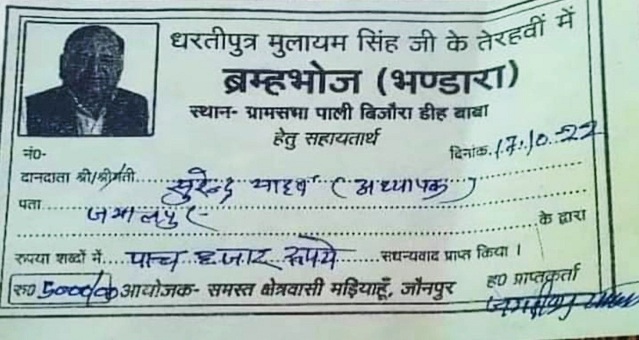 धरतीपुत्र मुलायम सिंह जी के तेरहवीं में
ब्रम्हभोज (भण्डारा)
स्थान- ग्रामसभा पाली बिजौरा डीह बाबा
हेतु सहायतार्थ
नं०- दिनांक. 17.10.22
दानदाता श्री/श्रीमती सुरेन्द्र यादव (अध्यापक)
पता जमालपुर के द्वारा
रुपया शब्दों में पाच हजार रूपये सधन्यवाद प्राप्त किया।
रु० 5000/ आयोजक- समस्त क्षेत्रवासी मड़ियाहूँ, जौनपुर ह० प्राप्तकर्ता